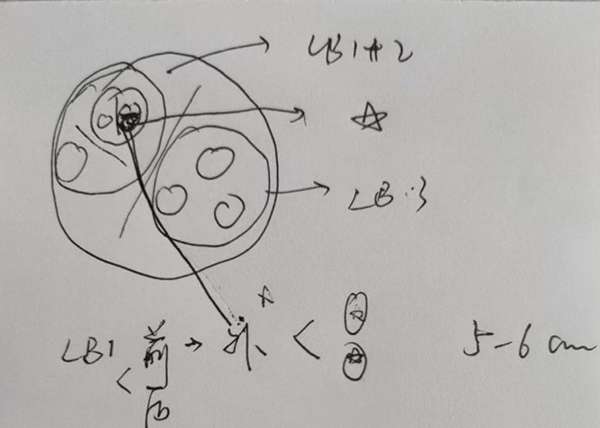 LB1+2
☆
LB3
LB1 < 前 → 外 < 5-6 cm
后